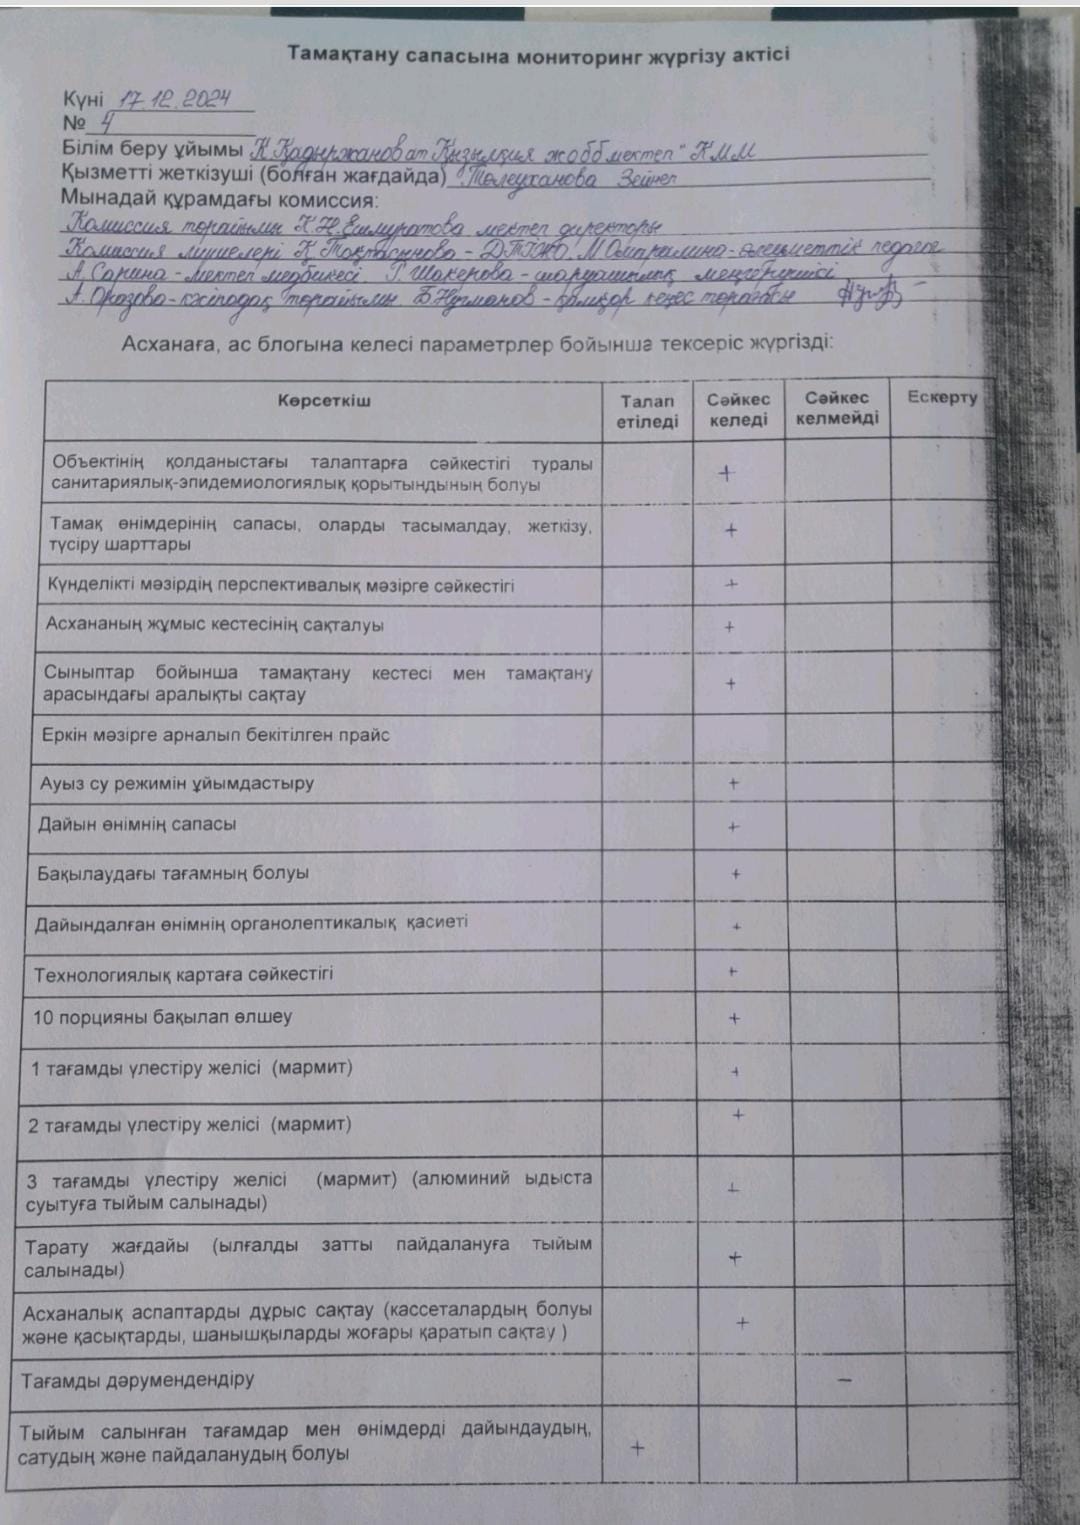 Тамақтану сапасына мониторинг жүргізу актісі
Күні 17.12.2024
№ 4
Білім беру ұйымы Қ.Қадыржанов ат "Қызылқия жоббмектеп" КММ
Қызметті жеткізуші (болған жағдайда) Төлеуханова Зейнеп
Мынадай құрамдағы комиссия:
Комиссия төрайымы К.Н.Ешмуратова мектеп директоры
Комиссия мүшелері Қ.Тоқтасынова - ДТІЖО. М.Омпралина - әлеуметтік педагог
А.Сарина - мектеп медбикесі. Г.Шакерова - шаруашылық меңгерушісі
А.Оразова - кәсіподақ төрайымы Б.Нұғманов - қамқор кеңес төрағасы
Асханаға, ас блогына келесі параметрлер бойынша тексеріс жүргізді:
Көрсеткіш Талап етіледі Сәйкес келеді Сәйкес келмейді Ескерту
Объектінің қолданыстағы талаптарға сәйкестігі туралы
санитариялық-эпидемиологиялық қорытындының болуы +
Тамақ өнімдерінің сапасы, оларды тасымалдау, жеткізу,
түсіру шарттары +
Күнделікті мәзірдің перспективалық мәзірге сәйкестігі +
Асхананың жұмыс кестесінің сақталуы +
Сыныптар бойынша тамақтану кестесі мен тамақтану
арасындағы аралықты сақтау +
Еркін мәзірге арналып бекітілген прайс
Ауыз су режимін ұйымдастыру +
Дайын өнімнің сапасы +
Бақылаудағы тағамның болуы +
Дайындалған өнімнің органолептикалық қасиеті +
Технологиялық картаға сәйкестігі +
10 порцияны бақылап өлшеу +
1 тағамды үлестіру желісі (мармит) +
2 тағамды үлестіру желісі (мармит) +
3 тағамды үлестіру желісі (мармит) (алюминий ыдыста
суытуға тыйым салынады) +
Тарату жағдайы (ылғалды затты пайдалануға тыйым
салынады) +
Асханалық аспаптарды дұрыс сақтау (кассеталардың болуы
және қасықтарды, шанышқыларды жоғары қаратып сақтау ) +
Тағамды дәрумендендіру −
Тыйым салынған тағамдар мен өнімдерді дайындаудың,
сатудың және пайдаланудың болуы +